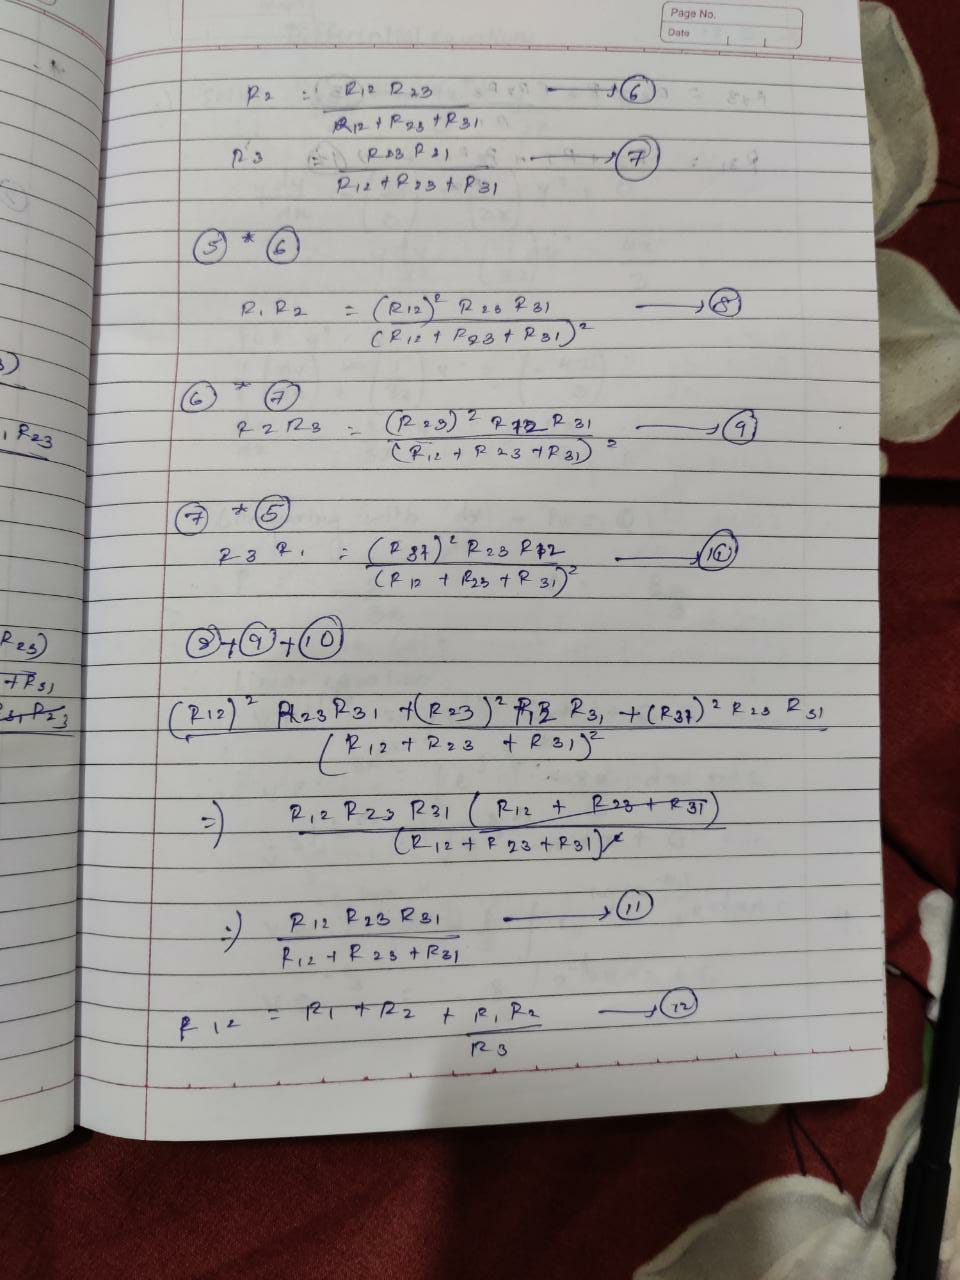 Page No.
Date
R2 = R12 R23 / R12 + R23 + R31 → 6
R3 = R23 R31 / R12 + R23 + R31 → 7
5 * 6
R1 R2 = (R12)² R23 R31 / (R12 + R23 + R31)² → 8
6 * 7
R2 R3 = (R23)² R12 R31 / (R12 + R23 + R31)² → 9
7 * 5
R3 R1 = (R31)² R23 R12 / (R12 + R23 + R31)² → 10
8 + 9 + 10
(R12)² R23 R31 + (R23)² R12 R31 + (R31)² R23 R31 / (R12 + R23 + R31)²
=) R12 R23 R31 (R12 + R23 + R31) / (R12 + R23 + R31)²
=) R12 R23 R31 / R12 + R23 + R31 → 11
R12 = R1 + R2 + R1 R2 / R3 → 12
R23
R23)
+R31